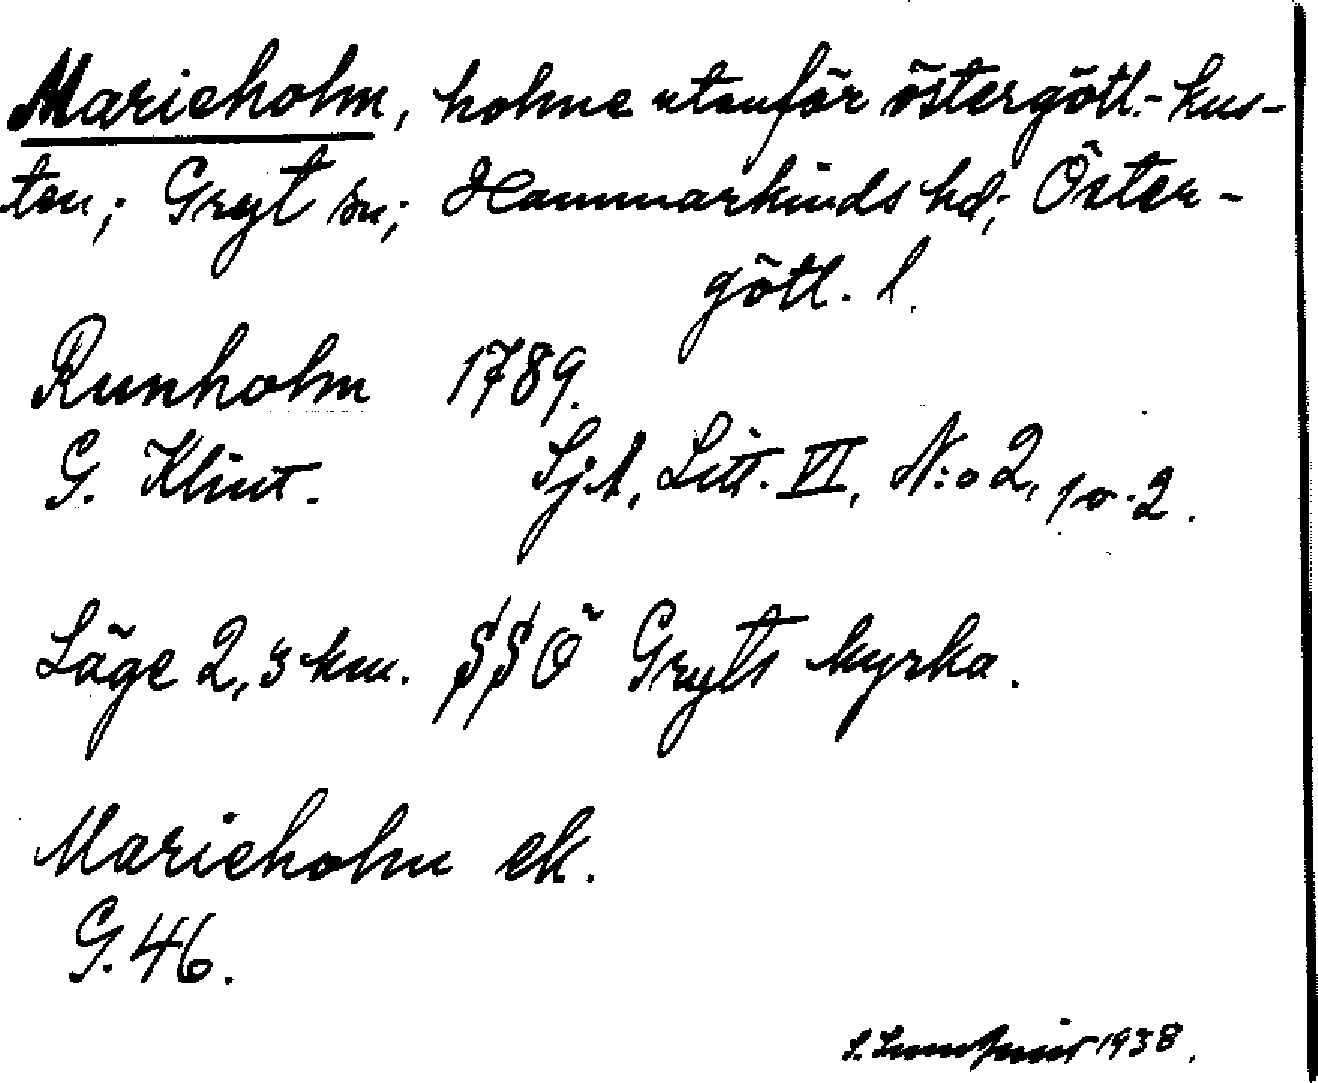 Marieholm, holme utanför östergötl.- kus-
ten; Gryt sn; Hammarkinds hd; Öster-
götl. l.
Runholm 1789.
G. Klint. Sjk, Litt. VI, N:o 2,
Läge 2,3 km. SSÖ Gryts kyrka.
Marieholm ek.
G. 46.
1938.